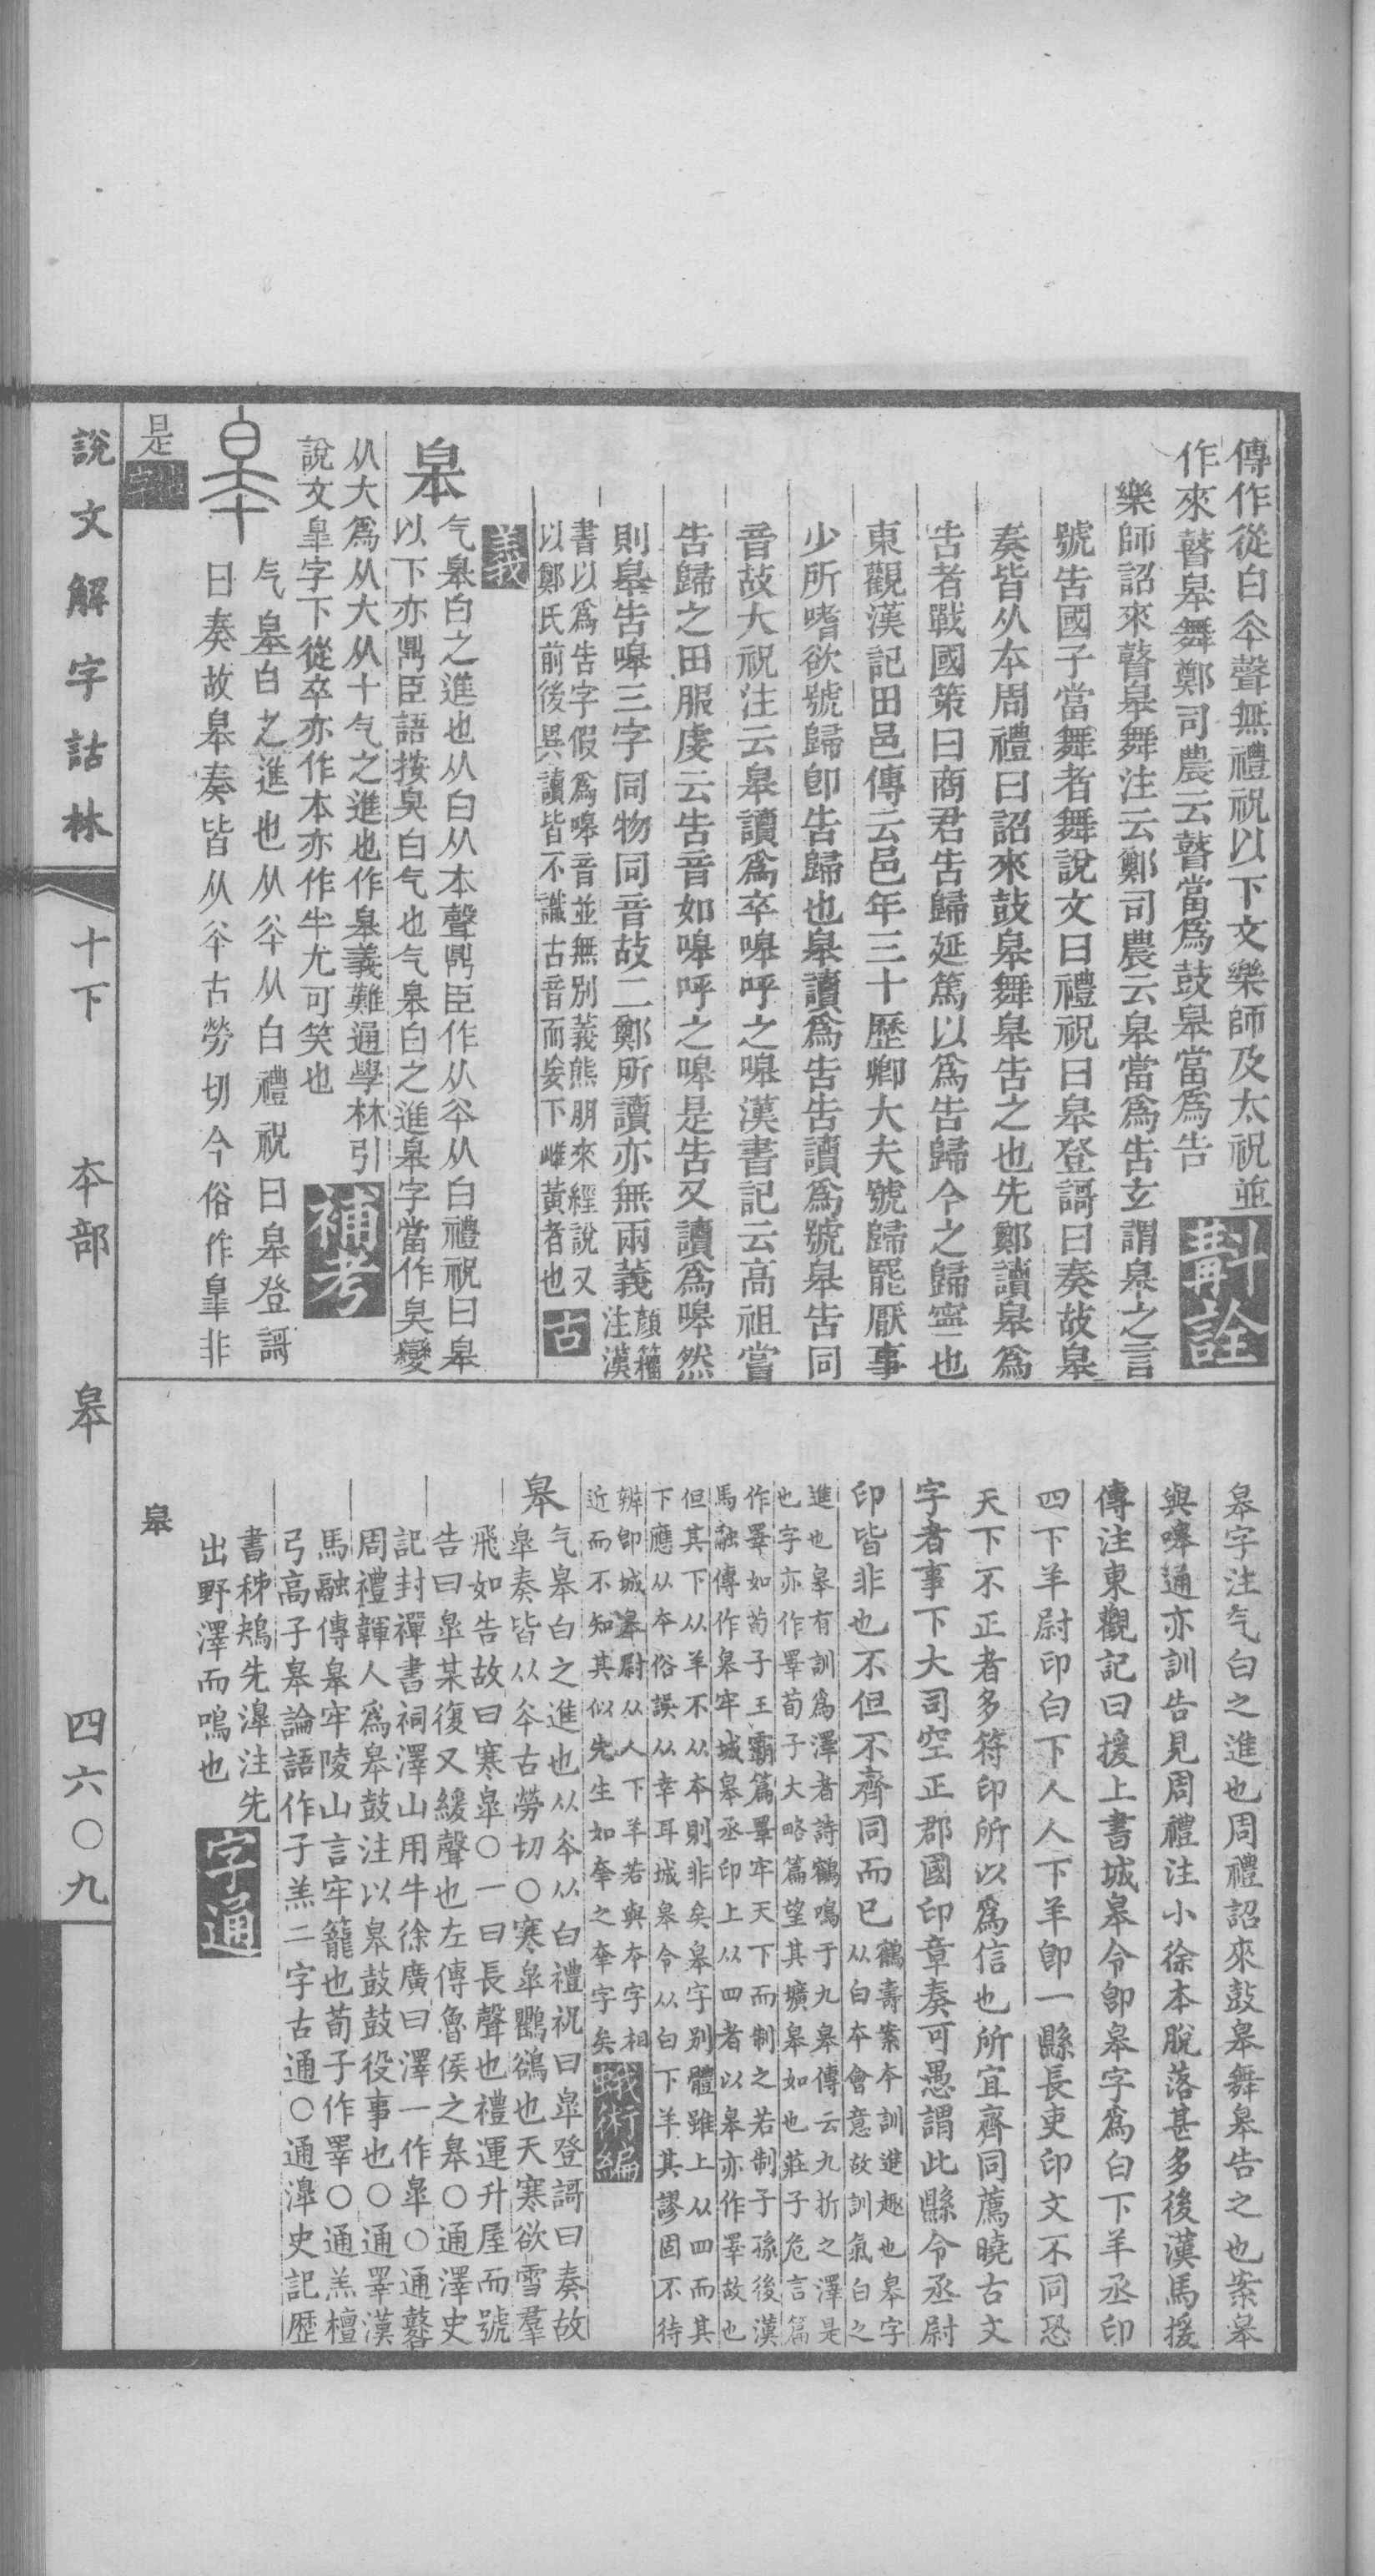 傳作從白夲聲無禮祝以下文樂師及太祝並
作來瞽皋舞鄭司農云瞽當爲鼓皋當爲告
斠詮
樂師詔來瞽皋舞注云鄭司農云皋當爲告玄謂皋之言
號告國子當舞者舞說文曰禮祝曰皋登謌曰奏故皋
奏皆从本周禮曰詔來鼓皋舞皋告之也先鄭讀皋爲
告者戰國策曰商君告歸延篤以爲告歸今之歸寧也
東觀漢記田邑傳云邑年三十歷卿大夫號歸罷厭事
少所嗜欲號歸卽告歸也皋讀爲告告讀爲號皋告同
音故大祝注云皋讀爲卒嘷呼之嘷漢書記云高祖嘗
告歸之田服虔云告音如嘷呼之嘷是告又讀爲嘷然
則皋告嘷三字同物同音故二鄭所讀亦無兩義顏籀注漢
書以爲告字假爲嘷音並無別義熊朋來經說又
以鄭氏前後異讀皆不識古音而妄下雌黃者也
古
義
皋 气皋白之進也从白从本聲鼎臣作从夲从白禮祝曰皋
以下亦鼎臣語按臭白气也气皋白之進皋字當作臭變
从大爲从大从十气之進也作皋義難通學林引
說文皐字下從卒亦作本亦作半尤可笑也
補考
气皋白之進也从夲从白禮祝曰皋登謌
曰奏故皋奏皆从夲古勞切今俗作皐非
是
皋字注气白之進也周禮詔來鼓皋舞皋告之也案皋
與嘷通亦訓告見周禮注小徐本脫落甚多後漢馬援
傳注東觀記曰援上書城皋令卽皋字爲白下羊丞印
四下羊尉印白下人人下羊卽一縣長吏印文不同恐
天下不正者多符印所以爲信也所宜齊同薦曉古文
字者事下大司空正郡國印章奏可愚謂此縣令丞尉
印皆非也不但不齊同而已鶴壽案夲訓進趣也皋字
从白夲會意故訓氣白之
進也皋有訓爲澤者詩鶴鳴于九皋傳云九折之澤是
也字亦作睪荀子大略篇望其壙皋如也莊子危言篇
作睪如荀子王霸篇睪牢天下而制之若制子孫後漢
馬融傳作皋牢城皋丞印上从四者以皋亦作睪故也
但其下从羊不从夲則非矣皋字別體雖上从四而其
下應从夲俗誤从幸耳城皋令从白下羊其謬固不待
辨卽城皋尉从人下羊若與夲字相
近而不知其似先生如㚔之㚔字矣
蛾術編
皋 气皋白之進也从夲从白禮祝曰皐登謌曰奏故
皐奏皆从夲古勞切○寒皐鸜鵒也天寒欲雪羣
飛如告故曰寒皐○一曰長聲也禮運升屋而號
告曰皐某復又緩聲也左傳魯侯之皋○通澤史
記封禪書祠澤山用牛徐廣曰澤一作皐○通鼛
周禮韗人爲皋鼓注以皋鼓鼓役事也○通睪漢
馬融傳皋牢陵山言牢籠也荀子作睪○通羔檀
弓高子皋論語作子羔二字古通○通滜史記歷
書秭鳺先滜注先
出野澤而鳴也
字通
皋
說文解字詁林
十下
夲部
皋
四六〇九